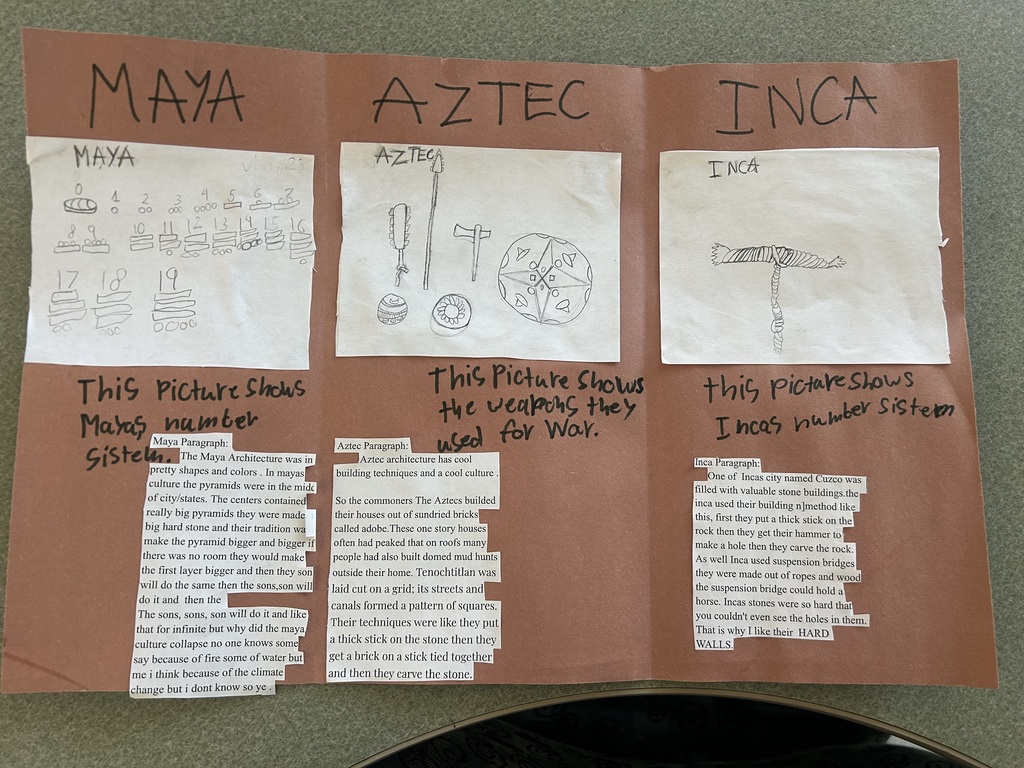 MAYA
MAYA
0 1 2 3 4 5 6 7
8 9 10 11 12 13 14 15 16
17 18 19
This Picture Shows
Mayas number
sistem.
Maya Paragraph:
The Maya Architecture was in
pretty shapes and colors . In mayas
culture the pyramids were in the midd
of city/states. The centers contained
really big pyramids they were made
big hard stone and their tradition wa
make the pyramid bigger and bigger if
there was no room they would make
the first layer bigger and then they son
will do the same then the sons,son will
do it and then the
The sons, sons, son will do it and like
that for infinite but why did the maya
culture collapse no one knows some
say because of fire some of water but
me i think because of the climate
change but i dont know so ye .
AZTEC
AZTEC
This Picture Shows
the weapons they
used for War.
Aztec Paragraph:
Aztec architecture has cool
building techniques and a cool culture .
So the commoners The Aztecs builded
their houses out of sundried bricks
called adobe.These one story houses
often had peaked that on roofs many
people had also built domed mud hunts
outside their home. Tenochtitlan was
laid cut on a grid; its streets and
canals formed a pattern of squares.
Their techniques were like they put
a thick stick on the stone then they
get a brick on a stick tied together
and then they carve the stone.
INCA
INCA
this picture shows
Incas number sistem
Inca Paragraph:
One of Incas city named Cuzco was
filled with valuable stone buildings.the
inca used their building n]method like
this, first they put a thick stick on the
rock then they get their hammer to
make a hole then they carve the rock.
As well Inca used suspension bridges
they were made out of ropes and wood
the suspension bridge could hold a
horse. Incas stones were so hard that
you couldn't even see the holes in them.
That is why I like their HARD
WALLS.